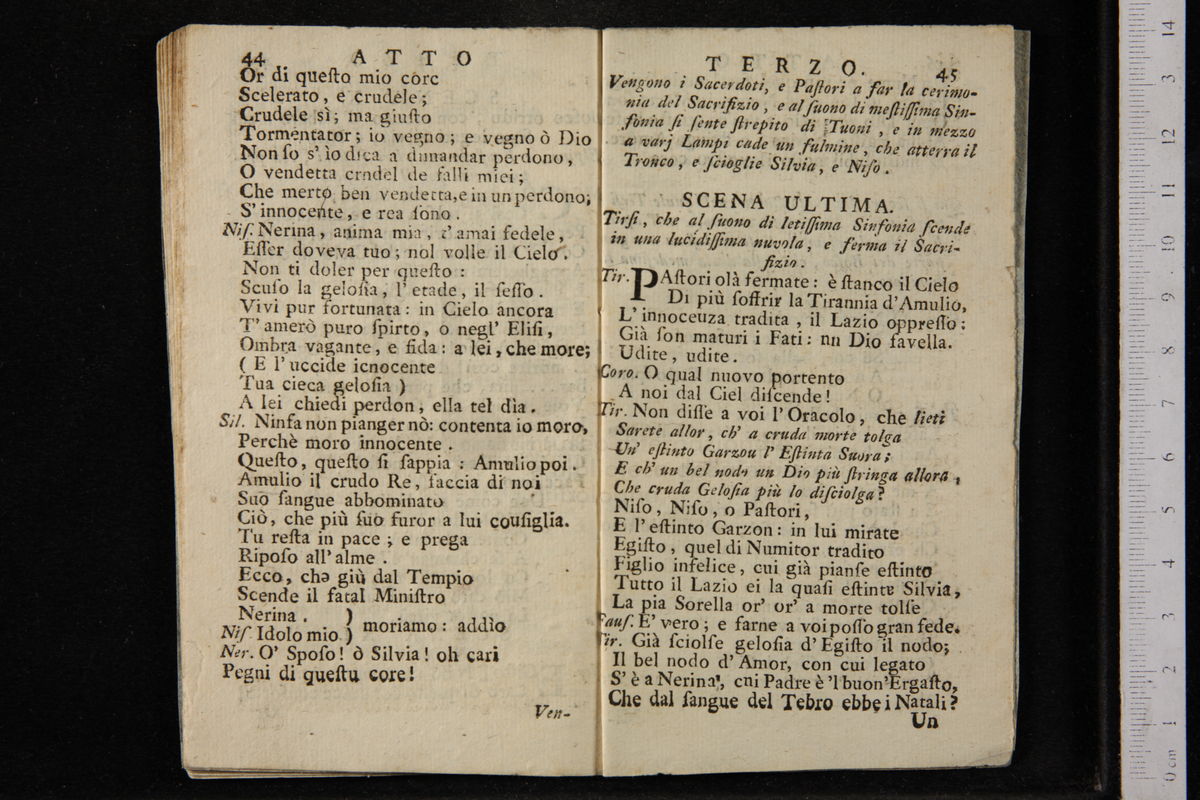 44 ATTO
Or di queſto mio core
Scelerato, e crudele;
Crudele sì; ma giuſto
Tormentator; io vegno; e vegno ò Dio
Non ſo s'ìo dica a dimandar perdono,
O vendetta crndel de falli miei;
Che merto ben vendetta, e in un perdono;
S'innocente, e rea ſono.
Niſ. Nerina, anima mia, t'amai fedele,
Eſſer doveva tuo; nol volle il Cielo.
Non ti doler per queſto:
Scuſo la geloſia, l'etade, il ſeſſo.
Vivi pur fortunata: in Cielo ancora
T'amerò puro ſpirto, o negl'Eliſi,
Ombra vagante, e fida: a lei, che more;
( E l'uccide icnocente
Tua cieca geloſia )
A lei chiedi perdon, ella tel dìa.
Sil. Ninfa non pianger nò: contenta io moro,
Perchè moro innocente.
Queſto, queſto ſi ſappia: Amulio poi.
Amulio il crudo Re, faccia di noi
Suo ſangue abbominato
Ciò, che più ſuo furor a lui couſiglia.
Tu reſta in pace; e prega
Ripoſo all'alme.
Ecco, chə giù dal Tempio
Scende il fatal Miniſtro
Nerina. )
Niſ Idolo mio ) moriamo: addìo
Ner. O' Spoſo! ò Silvia! oh cari
Pegni di queſtu core!
Ven-
TERZO. 45
Vengono i Sacerdoti, e Paſtori a far la cerimo-
nia del Sacrifizio, e al ſuono di meſtiſſima Sin-
fonia ſi ſente ſtrepito di Tuoni, e in mezzo
a varj Lampi cade un fulmine, che atterra il
Tronco, e ſcioglie Silvia, e Niſo.
SCENA ULTIMA.
Tirſi, che al ſuono di letiſſima Sinfonia ſcende
in una lucidiſſima nuvola, e ferma il Sacri-
fizio.
Tir. PAſtori olà fermate: è ſtanco il Cielo
Di più ſoffrir la Tirannia d'Amulio,
L'innoceuza tradita, il Lazio oppreſſo:
Già ſon maturi i Fati: nn Dio favella.
Udite, udite.
Coro. O qual nuovo portento
A noi dal Ciel diſcende!
Tir. Non diſſe a voi l'Oracolo, che lieti
Sarete allor, ch'a cruda morte tolga
Un' eſtinto Garzou l'Eſtinta Suora;
E ch'un bel nodo un Dio più ſtringa allora,
Che cruda Geloſia più lo diſciolga?
Niſo, Niſo, o Paſtori,
E l'eſtinto Garzon: in lui mirate
Egiſto, quel di Numitor tradito
Figlio infelice, cui già pianſe eſtinto
Tutto il Lazio ei la quaſi eſtinte Silvia,
La pia Sorella or' or' a morte tolſe
Fauſ. E' vero; e farne a voi poſſo gran fede.
Tir. Già ſciolſe geloſia d'Egiſto il nodo;
Il bel nodo d'Amor, con cui legato
S'è a Nerina', cni Padre è'l buon'Ergaſto,
Che dal ſangue del Tebro ebbe i Natali?
Un